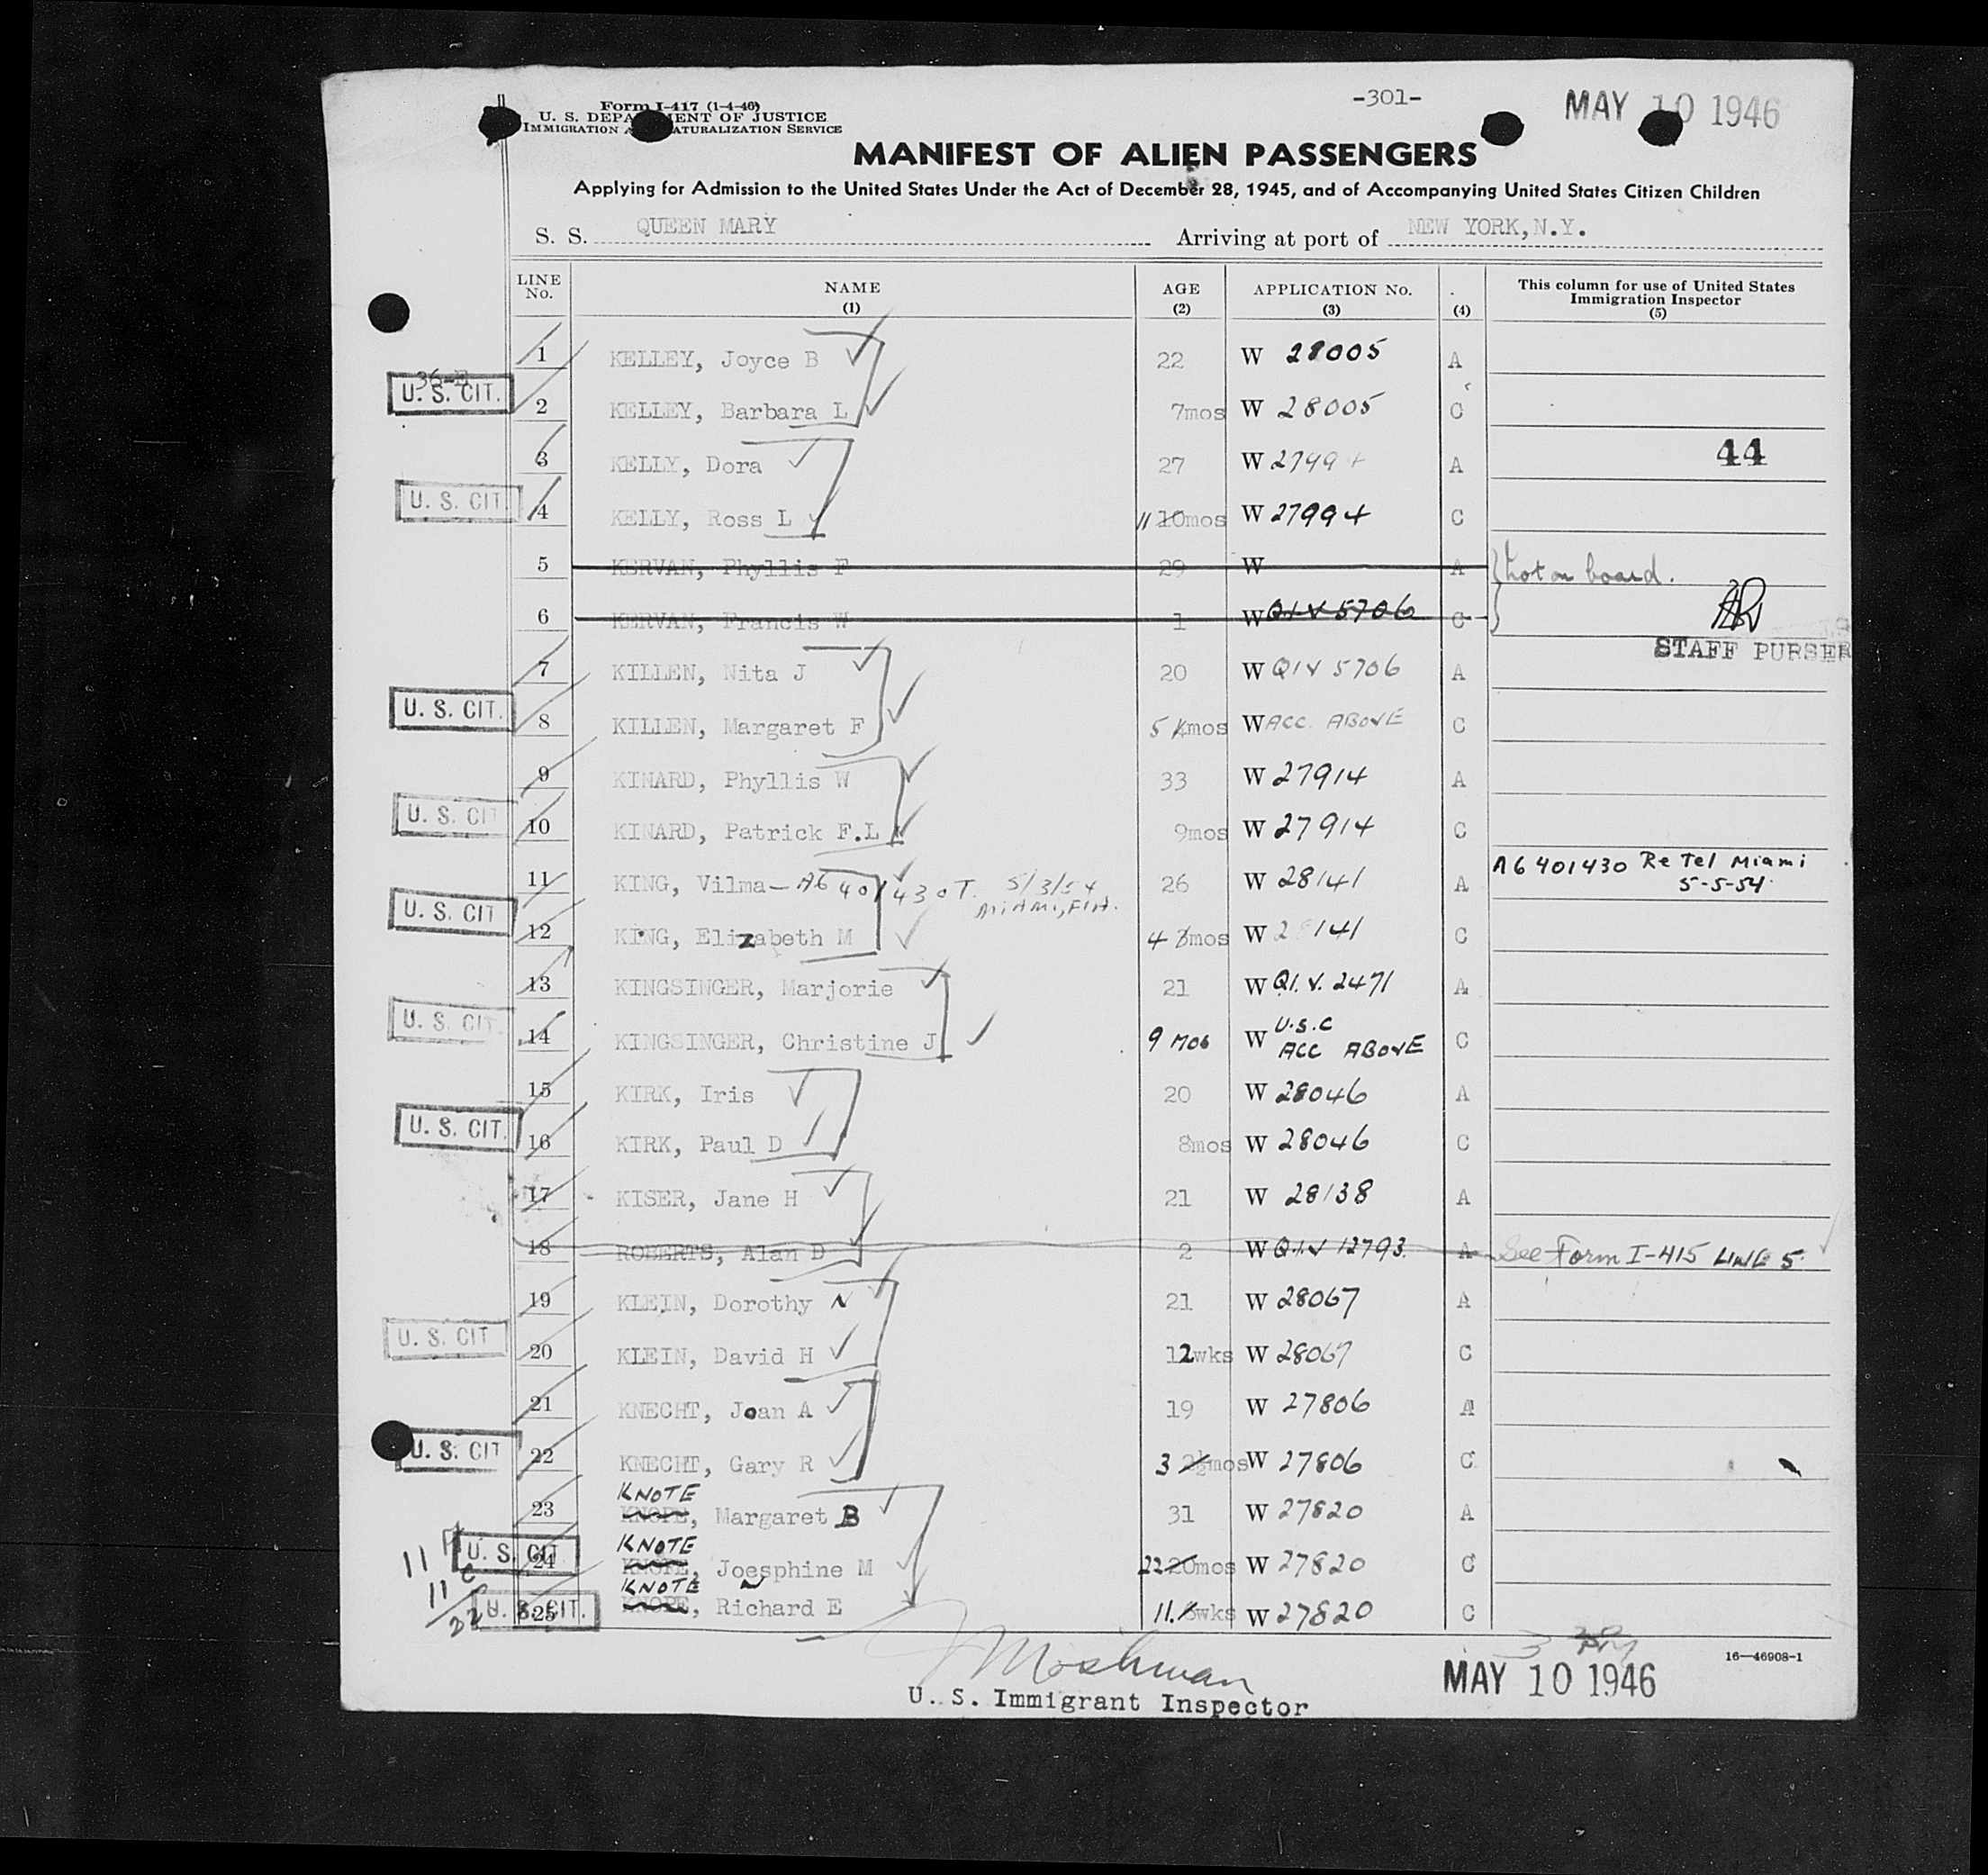 Form I-417 (1-4-46)
-301-
MAY 10 1946
U. S. DEPA MENT OF JUSTICE
IMMIGRATION A NATURALIZATION SERVICE
MANIFEST OF ALIEN PASSENGERS
Applying for Admission to the United States Under the Act of December 28, 1945, and of Accompanying United States Citizen Children
S. S. QUEEN MARY Arriving at port of NEW YORK, N.Y.
LINE No. NAME (1) AGE (2) APPLICATION No. (3) (4) This column for use of United States Immigration Inspector (5)
1 KELLEY, Joyce B 22 W 28005 A
U. S. CIT. 2 KELLEY, Barbara L 7mos W 28005 C
3 KELLY, Dora 27 W 27994 A 44
U. S. CIT 4 KELLY, Ross L 11 10mos W 27994 C
5 KERVAN, Phyllis F 29 W A Not on board.
6 KERVAN, Francis W 1 W Q1V 5706 C
STAFF PURSER
7 KILLEN, Nita J 20 W Q1V 5706 A
U. S. CIT. 8 KILLEN, Margaret F 5 4mos W ACC. ABOVE C
9 KINARD, Phyllis W 33 W 27914 A
U. S. CIT 10 KINARD, Patrick F.L 9mos W 27914 C
11 KING, Vilma - A6 401430 T. 5/3/54 Miami, Fla. 26 W 28141 A A6401430 Re Tel Miami 5-5-54.
U. S. CIT 12 KING, Elizabeth M 4 3mos W 28141 C
13 KINGSINGER, Marjorie 21 W Q1.V. 2471 A
U. S. CIT 14 KINGSINGER, Christine J 9 mos W U.S.C ACC ABOVE C
15 KIRK, Iris 20 W 28046 A
U. S. CIT. 16 KIRK, Paul D 8mos W 28046 C
17 KISER, Jane H 21 W 28138 A
18 ROBERTS, Alan D 2 W Q1V 12793. A See Form I-415 LINE 5.
19 KLEIN, Dorothy N 21 W 28067 A
U. S. CIT 20 KLEIN, David H 12wks W 28067 C
21 KNECHT, Joan A 19 W 27806 A
U. S. CIT 22 KNECHT, Gary R 3 2½mos W 27806 C
KNOTE
23 KNOPE, Margaret B 31 W 27820 A
KNOTE
11 A U. S. CIT 24 KNOPE, Joesphine M 22 20mos W 27820 C
KNOTE
11 C U. S. CIT. 25 KNOPE, Richard E 11. wks W 27820 C
22
3 PM
16—46908-1
Moshman
MAY 10 1946
U. S. Immigrant Inspector